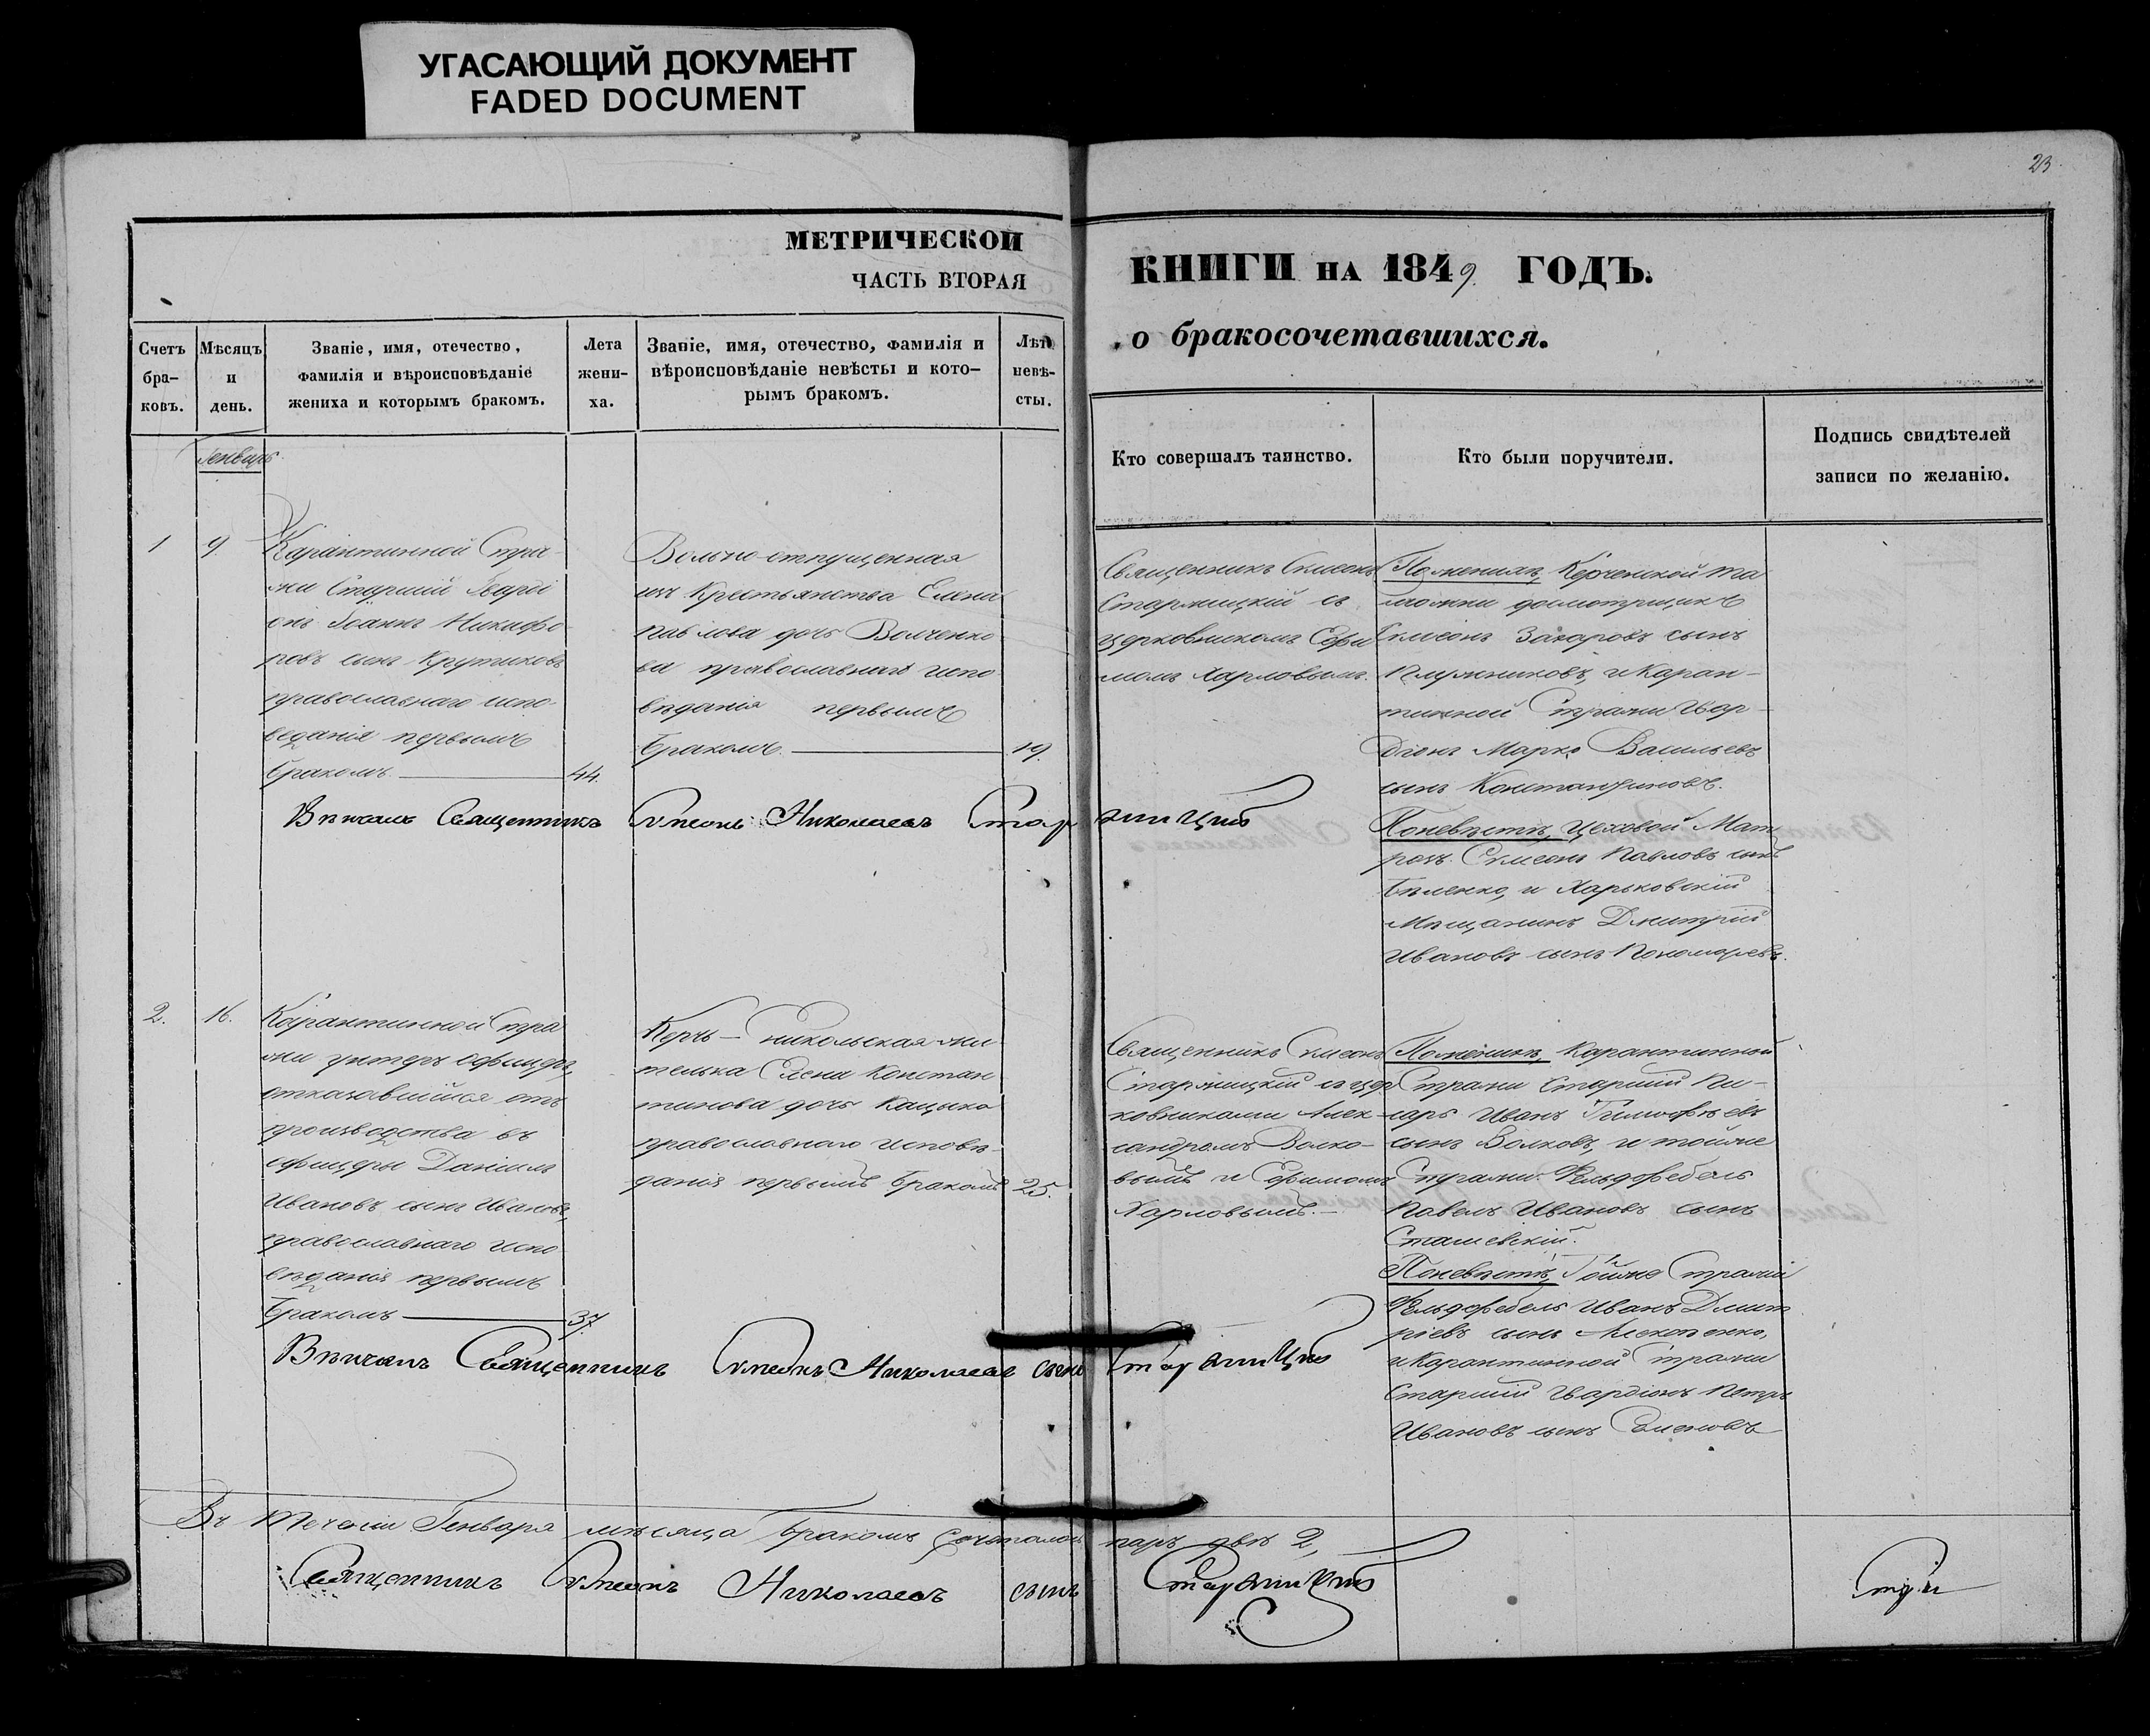 УГАСАЮЩИЙ ДОКУМЕНТ
FADED DOCUMENT
23
МЕТРИЧЕСКОЙ
ЧАСТЬ ВТОРАЯ
КНИГИ НА 1849 ГОДЪ.
о бракосочетавшихся.
Счетъ бра- ковъ.
Мѣсяцъ и день.
Званіе, имя, отечество,
фамилія и вѣроисповѣданіе
жениха и которымъ бракомъ.
Лета жени- ха.
Званіе, имя, отечество, фамилія и
вѣроисповѣданіе невѣсты и кото-
рымъ бракомъ.
Лѣта невѣ- сты.
Кто совершалъ таинство.
Кто были поручители.
Подпись свидѣтелей
записи по желанію.
Генварь
1
9
Карантинной Стра-
жи Старшій Гварді
онъ Іоаннъ Никифо
ровъ сынъ Крутиковъ
православнаго испо-
веданія первымъ
бракомъ. 44.
Вольно-отпущенная
изъ Крестьянства Елена
Павлова дочь Волченко
ва православнаго испо
вѣданія первымъ
бракомъ. 19.
Священникъ Симеонъ
Старжицкій съ
церковникомъ Ефи
момъ Харловымъ.
По женихѣ, Керченской та
можни досмотрщикъ
Симеонъ Захаровъ сынъ
Плужниковъ, и Каран-
тинной Стражи Гвар-
діонъ Марко Васильевъ
сынъ Константиновъ.
По невѣстѣ, Цеховой Мат
розъ Симеонъ Павловъ сынъ
Бѣленко, и Харьковскій
Мѣщанинъ Дмитрій
Ивановъ сынъ Пономаревъ.
Вѣнчалъ Священникъ Симеонъ Николаевъ Старжицкій
2.
16.
Карантинной Стра
жи унтеръ офицеръ,
отказавшійся отъ
производства въ
офицеры Даніилъ
Ивановъ сынъ Ивановъ,
православнаго испо
вѣданія первымъ
бракомъ 37.
Керчь-Еникольская жи
телька Елена Констан
тинова дочь Кацыка
православнаго исповѣ-
данія первымъ бракомъ 25.
Священникъ Симеонъ
Старжицкій съ цер
ковниками Алек-
сандромъ Волко-
вымъ и Ефимомъ
Харловымъ.-
По женихѣ, Карантинной
Стражи Старшій Пи-
сарь Иванъ Тимофѣевъ
сынъ Волковъ, и тойже
Стражи Фельдфебель
Павелъ Ивановъ сынъ
Сташевскій.
По невѣстѣ, Тойже Стражи
Фельдфебель Иванъ Дмит
ріевъ сынъ Алексѣенко,
и Карантинной Стражи
Старшій Гвардіонъ Петръ
Ивановъ сынъ Семеновъ
Вѣнчалъ Священникъ Симеонъ Николаевъ сынъ Старжицкій
Въ теченіи Генваря мѣсяца бракомъ сочеталось паръ двѣ 2,
Священникъ Симеонъ Николаевъ сынъ Старжицкій